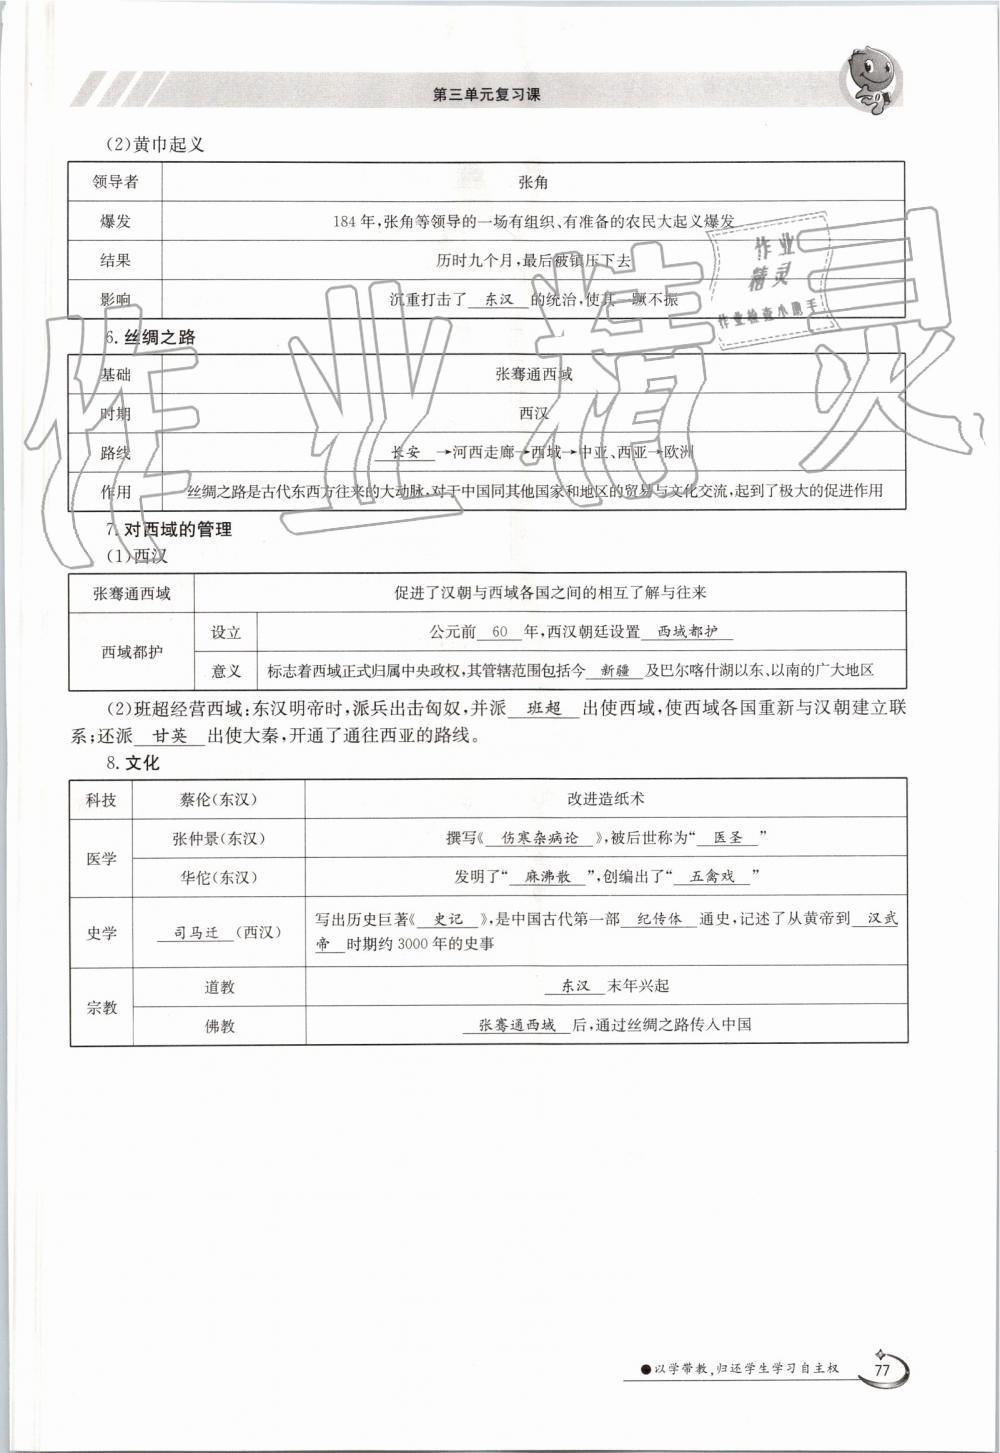 第三单元复习课
(2)黄巾起义
领导者 张角
爆发 184年,张角等领导的一场有组织、有准备的农民大起义爆发
结果 历时九个月,最后被镇压下去
影响 沉重打击了 东汉 的统治,使其一蹶不振
6. 丝绸之路
基础 张骞通西域
时期 西汉
路线 长安→河西走廊→西域→中亚、西亚→欧洲
作用 丝绸之路是古代东西方往来的大动脉,对于中国同其他国家和地区的贸易与文化交流,起到了极大的促进作用
7. 对西域的管理
(1)西汉
张骞通西域 促进了汉朝与西域各国之间的相互了解与往来
西域都护 设立 公元前 60 年,西汉朝廷设置 西域都护
意义 标志着西域正式归属中央政权,其管辖范围包括今 新疆 及巴尔喀什湖以东、以南的广大地区
(2)班超经营西域:东汉明帝时,派兵出击匈奴,并派 班超 出使西域,使西域各国重新与汉朝建立联
系;还派 甘英 出使大秦,开通了通往西亚的路线。
8. 文化
科技 蔡伦(东汉) 改进造纸术
医学 张仲景(东汉) 撰写《 伤寒杂病论 》,被后世称为“ 医圣 ”
华佗(东汉) 发明了“ 麻沸散 ”,创编出了“ 五禽戏 ”
史学 司马迁 (西汉) 写出历史巨著《 史记 》,是中国古代第一部 纪传体 通史,记述了从黄帝到 汉武
帝 时期约3000年的史事
宗教 道教 东汉 末年兴起
佛教 张骞通西域 后,通过丝绸之路传入中国
●以学带教,归还学生学习自主权 77
作业精灵
作业
精灵
作业检查小助手